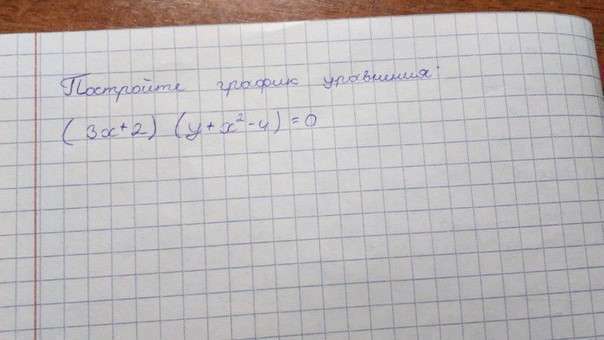 Постройте график уравнения:
(3x+2) (y+x²-4)=0